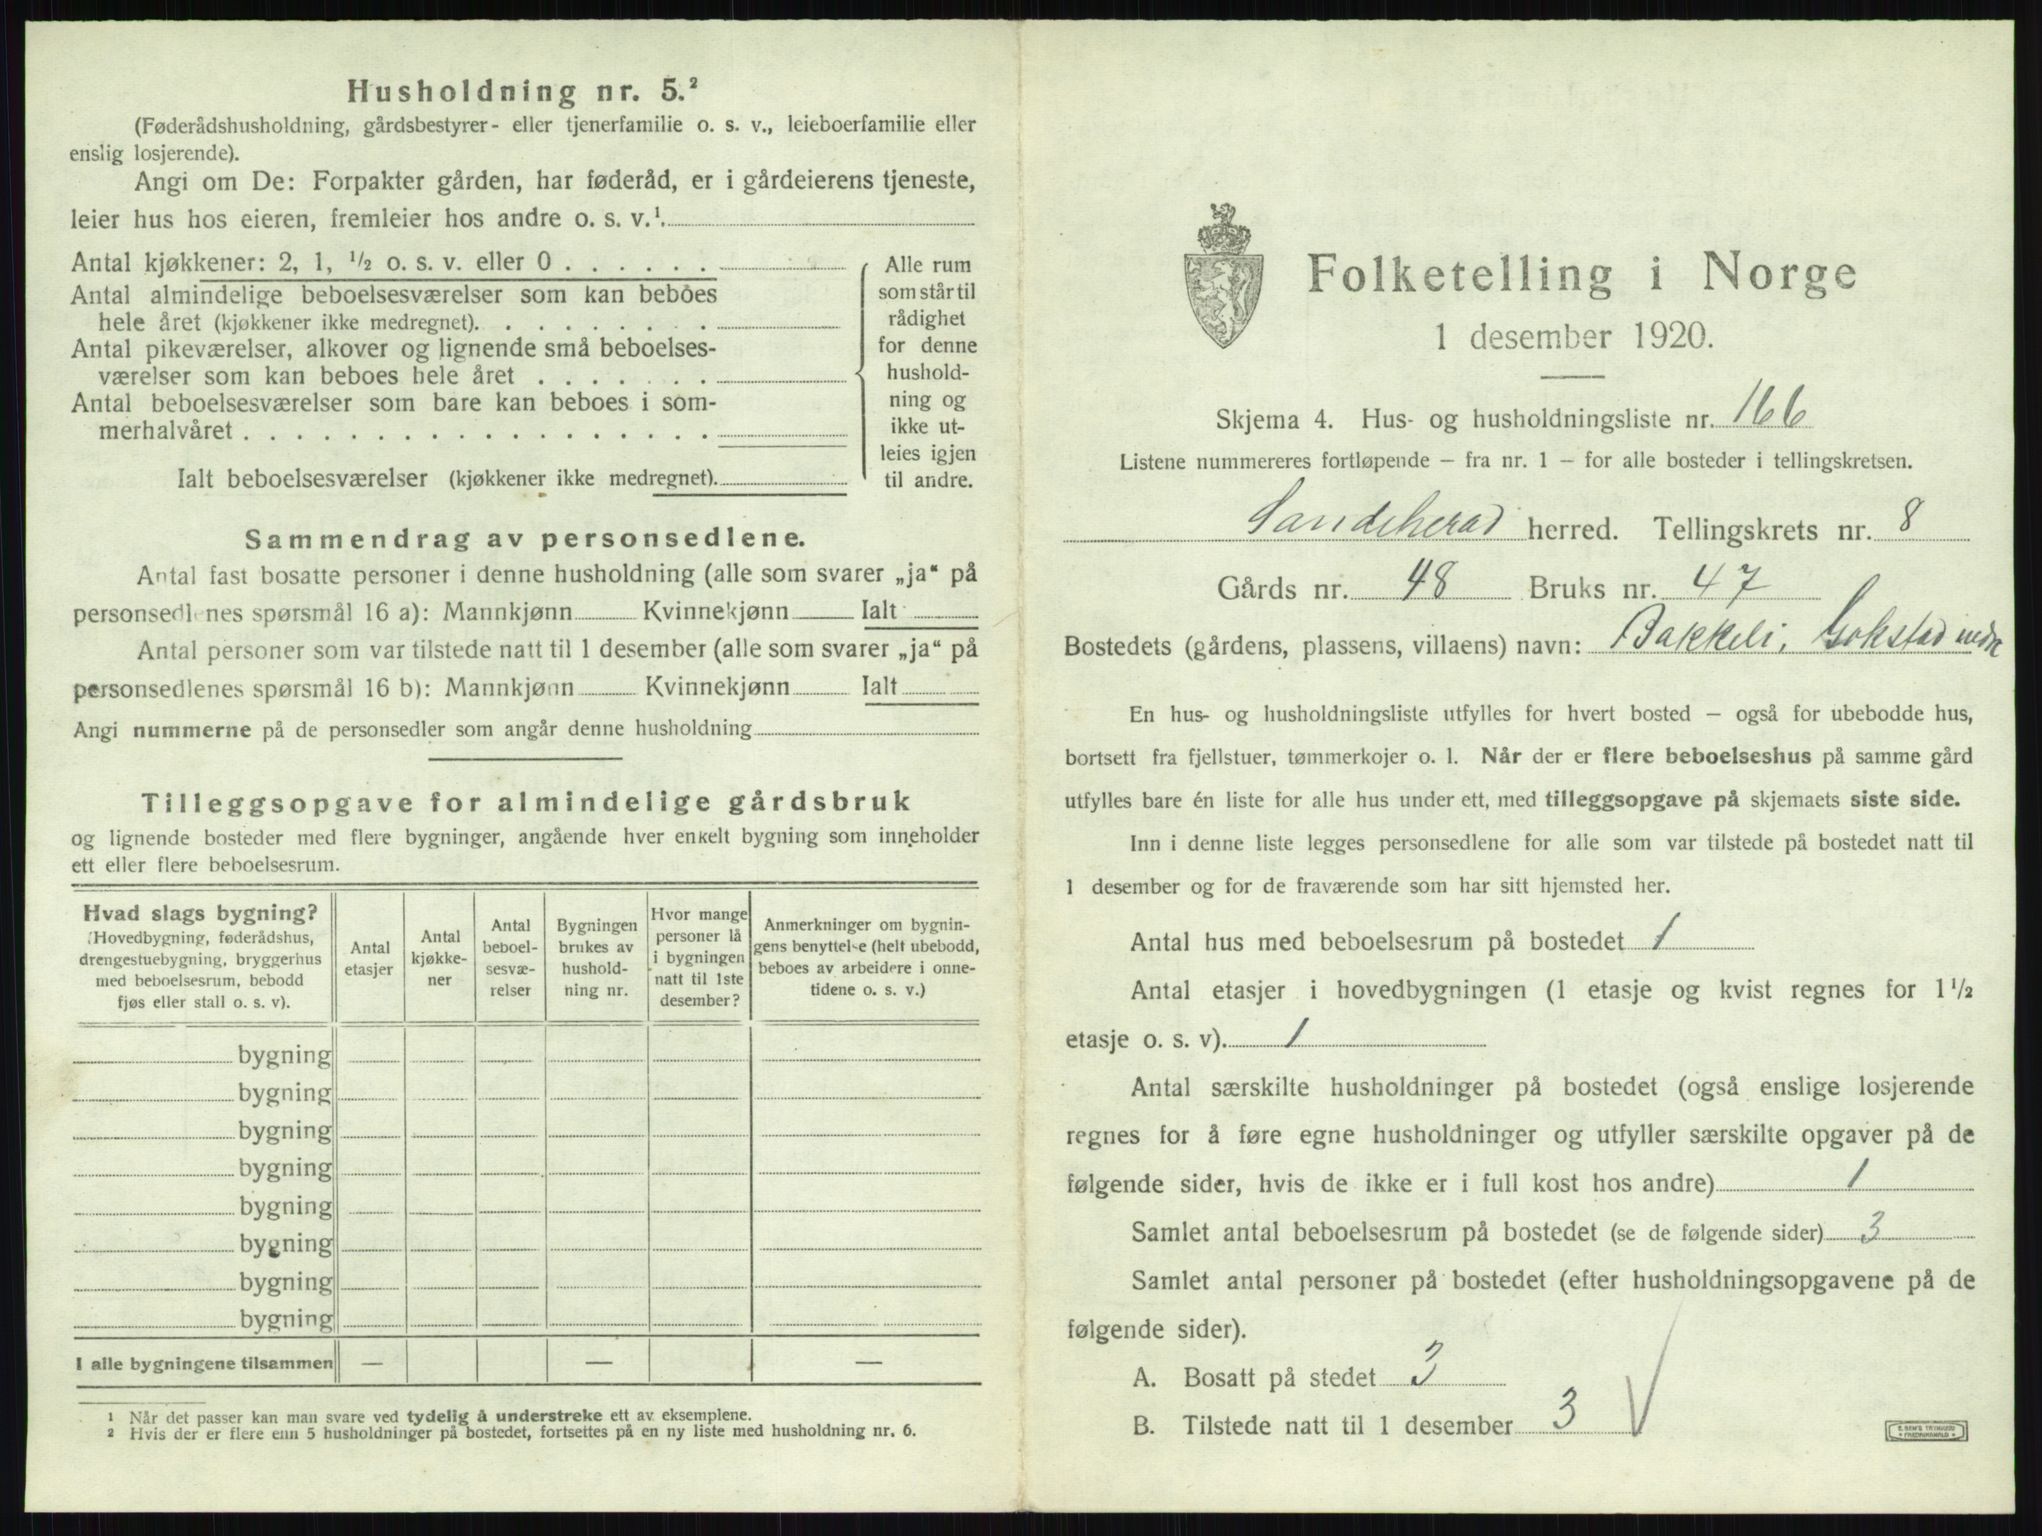 Husholdning nr. 5.²
(Føderådshusholdning, gårdsbestyrer- eller tjenerfamilie o. s. v., leieboerfamilie eller
enslig losjerende).
Angi om De: Forpakter gården, har føderåd, er i gårdeierens tjeneste,
leier hus hos eieren, fremleier hos andre o. s. v.¹.
Antal kjøkkener: 2, 1, ½ o. s. v. eller 0 . . . . . .
Antal almindelige beboelsesværelser som kan beboes
hele året (kjøkkener ikke medregnet). . . . . . . . .
Antal pikeværelser, alkover og lignende små beboelses-
værelser som kan beboes hele året . . . . . . .
Antal beboelsesværelser som bare kan beboes i som-
merhalvåret . . . . . . . . . . . . . . . . . .
Ialt beboelsesværelser (kjøkkener ikke medregnet).
Alle rum
som står til
rådighet
for denne
hushold-
ning og
ikke ut-
leies igjen
til andre.
Sammendrag av personsedlene.
Antal fast bosatte personer i denne husholdning (alle som svarer „ja“ på
personsedlenes spørsmål 16 a): Mannkjønn Kvinnekjønn Ialt
Antal personer som var tilstede natt til 1 desember (alle som svarer „ja“ på
personsedlenes spørsmål 16 b): Mannkjønn Kvinnekjønn Ialt
Angi nummerne på de personsedler som angår denne husholdning
Tilleggsopgave for almindelige gårdsbruk
og lignende bosteder med flere bygninger, angående hver enkelt bygning som inneholder
ett eller flere beboelsesrum.
Hvad slags bygning?
(Hovedbygning, føderådshus,
drengestuebygning, bryggerhus
med beboelsesrum, bebodd
fjøs eller stall o. s. v).
Antal
etasjer
Antal
kjøkke-
ner
Antal
beboel-
sesvæ-
relser
Bygningen
brukes av
hushold-
ning nr.
Hvor mange
personer lå
i bygningen
natt til 1ste
desember?
Anmerkninger om bygnin-
gens benyttelse (helt ubebodd,
beboes av arbeidere i onne-
tidene o. s. v.)
bygning
bygning
bygning
bygning
bygning
bygning
bygning
bygning
I alle bygningene tilsammen — — —
¹ Når det passer kan man svare ved tydelig å understreke ett av eksemplene.
² Hvis der er flere enn 5 husholdninger på bostedet, fortsettes på en ny liste med husholdning nr. 6.
Folketelling i Norge
1 desember 1920.
Skjema 4. Hus- og husholdningsliste nr. 166
Listene nummereres fortløpende – fra nr. 1 – for alle bosteder i tellingskretsen.
Sandeherad herred. Tellingskrets nr. 8
Gårds nr. 48 Bruks nr. 47
Bostedets (gårdens, plassens, villaens) navn: Bakkeli, Gokstad nedre
En hus- og husholdningsliste utfylles for hvert bosted – også for ubebodde hus,
bortsett fra fjellstuer, tømmerkojer o. l. Når der er flere beboelseshus på samme gård
utfylles bare én liste for alle hus under ett, med tilleggsopgave på skjemaets siste side.
Inn i denne liste legges personsedlene for alle som var tilstede på bostedet natt til
1 desember og for de fraværende som har sitt hjemsted her.
Antal hus med beboelsesrum på bostedet 1
Antal etasjer i hovedbygningen (1 etasje og kvist regnes for 1½
etasje o. s. v). 1
Antal særskilte husholdninger på bostedet (også enslige losjerende
regnes for å føre egne husholdninger og utfyller særskilte opgaver på de
følgende sider, hvis de ikke er i full kost hos andre) 1
Samlet antal beboelsesrum på bostedet (se de følgende sider) 3
Samlet antal personer på bostedet (efter husholdningsopgavene på de
følgende sider).
A. Bosatt på stedet 3
B. Tilstede natt til 1 desember 3 V